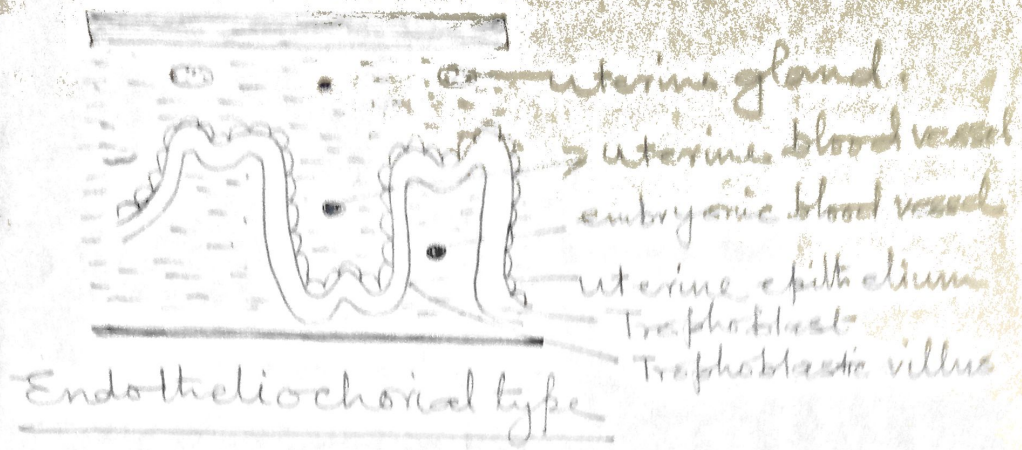 uterine gland.
uterine blood vessel
embryonic blood vessel
uterine epithelium
Trophoblast
Trophoblastic villus
Endotheliochorial type